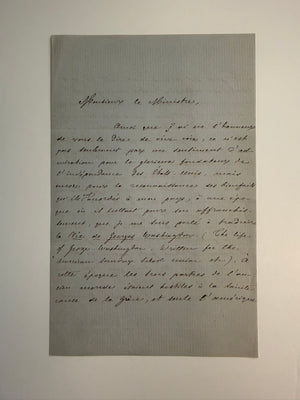 Monsieur le Ministre,
Ainsi que j'ai eu l'honneur
de vous le dire de vive voix, ce n'est
pas seulement par un sentiment d'ad-
miration pour le glorieux fondateur de
l'indépendance des États Unis, mais
encore pour la reconnaissance des bienfaits
qu'il accordés à mon pays, à une épo-
que où il luttait pour son affranchis-
sement, que je me suis porté à traduire
la Vie de Georges Washington (The life
of George Washington, written for the
american sunday school union etc.). À
cette époque les trois parties de l'an-
cien monde étaient hostiles à la sainte
cause de la Grèce, et seule l'Amérique